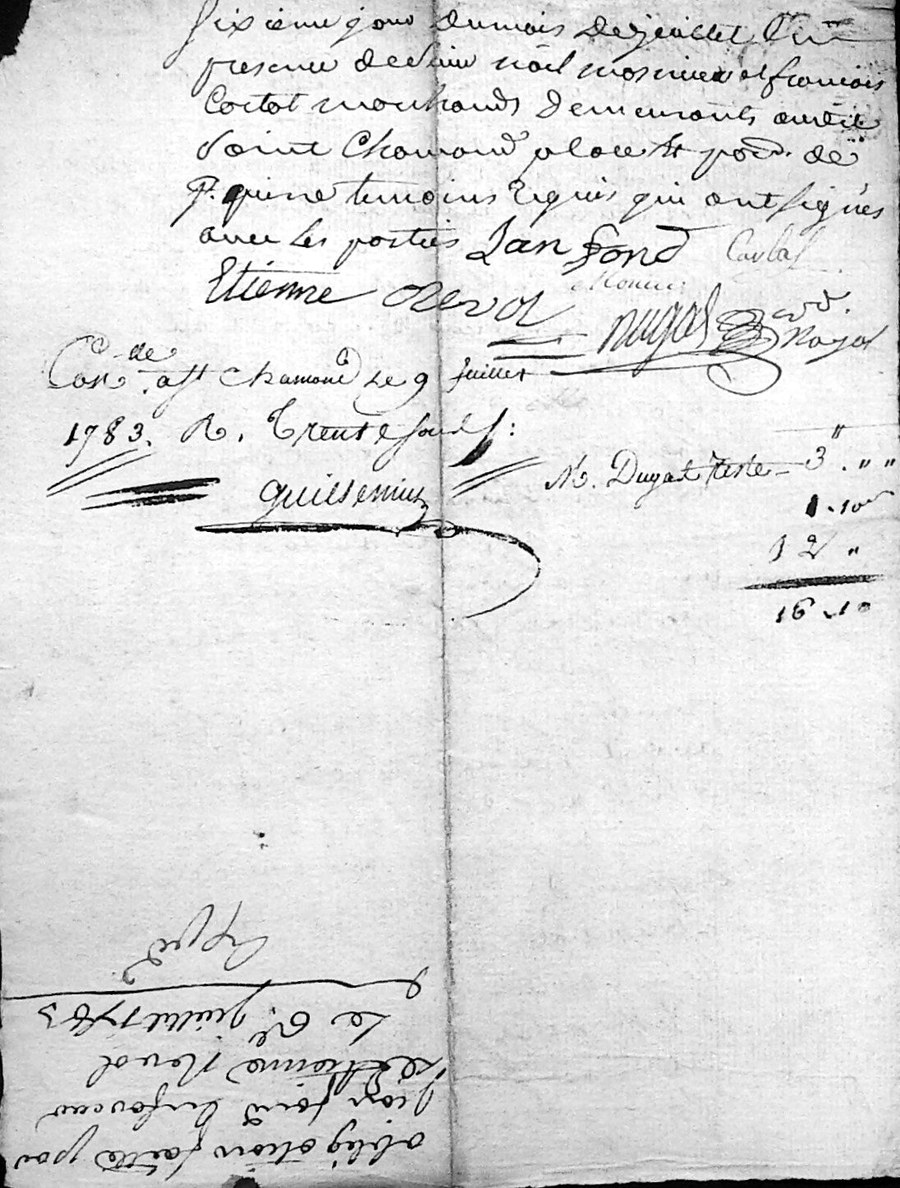 sixieme jour du mois de juillet En
presence de Sieur noël mosnier et francois
Cortot marchands demeurants audit
Saint Chamond place et par de
temoins Requis qui ont signés
avec les parties Jan fond Cortot
Etienne Revol Monier
dugas Revol.
Con.de a St chamond le 9 juillet
1783. R. Trente sols:
guillemin
M. Dugat teste - 3 . " "
1 . 10
12 "
16 . 10
obligation faitte par
Jean fond en faveur
d'etienne Revol
Le 6e. juillet 1783
Expéd